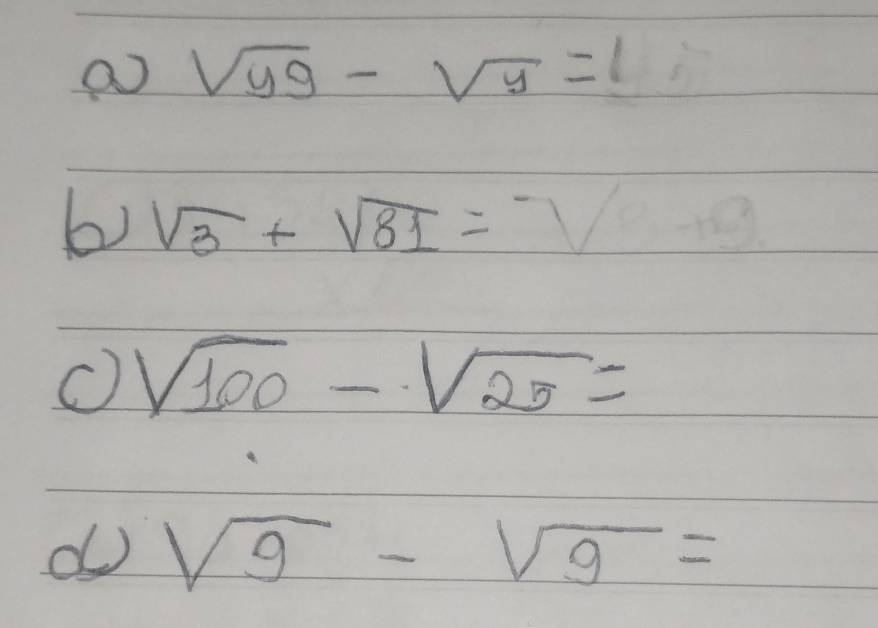 a) √49 - √4 =
b) √3 + √81 =
c) √100 - √25 =
d) √9 - √9 =